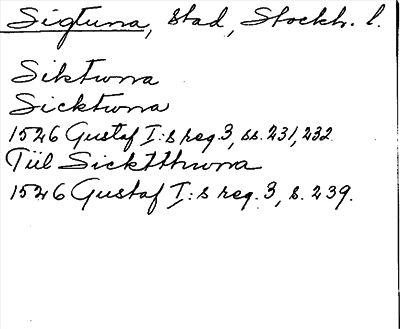 Sigtuna, stad, Stockh. l.
Siktwna
Sicktwna
1526 Gustaf I:s reg. 3, ss. 231, 232
Tiil Sicktthwna
1526 Gustaf I:s reg. 3, s. 239.